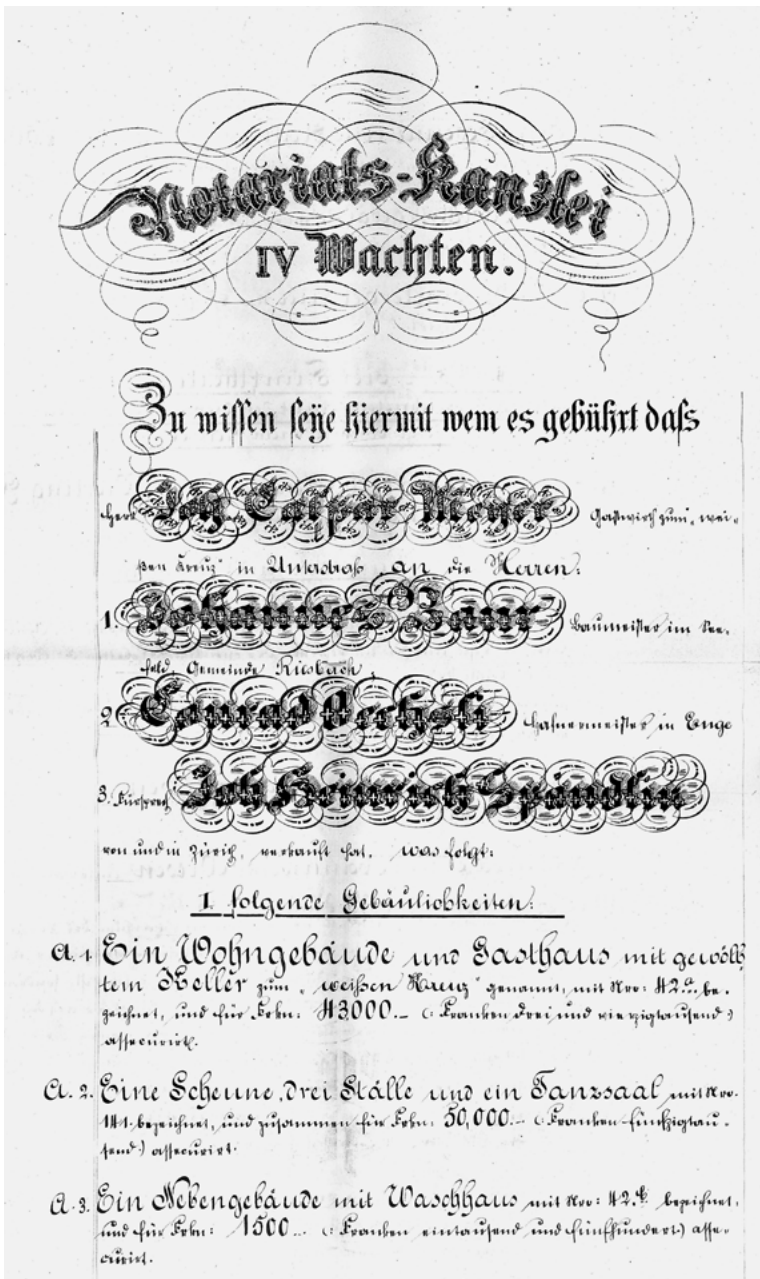 Notariats-Kanzlei
IV Wachten.
Zu wissen seÿe hiermit wem es gebührt daß
Herr Joh. Caspar Meÿer Gastwirth zum „wei-
ßen Kreuz" in Unterstraß an die Herren:
1. Johannes Baur Baumeister im See-
feld, Gemeinde Riesbach
2. Conrad Aechsli Hafnermeister in Enge
3. Fürsprech Joh. Heinrich Spöndlin
von und in Zürich, verkauft hat, was folgt:
I. folgende Gebäulichkeiten:
A. 1. Ein Wohngebäude und Gasthaus mit gewölb-
tem Keller zum „weißen Kreuz" genannt, mit Nro: 42.a be-
zeichnet, und für Frkn: 43,000.– (: Franken drei und vierzigtausend :)
assecurirt.
A. 2. Eine Scheune, drei Ställe und ein Tanzsaal mit Nro.
141 bezeichnet, und zusammen für Frkn: 50,000.– (: Franken fünfzigtau-
send :) assecurirt.
A. 3. Ein Nebengebäude mit Waschhaus mit Nro: 42.b bezeichnet,
und für Frkn: 1500.– (: Franken eintausend und fünfhundert :) asse-
curirt.